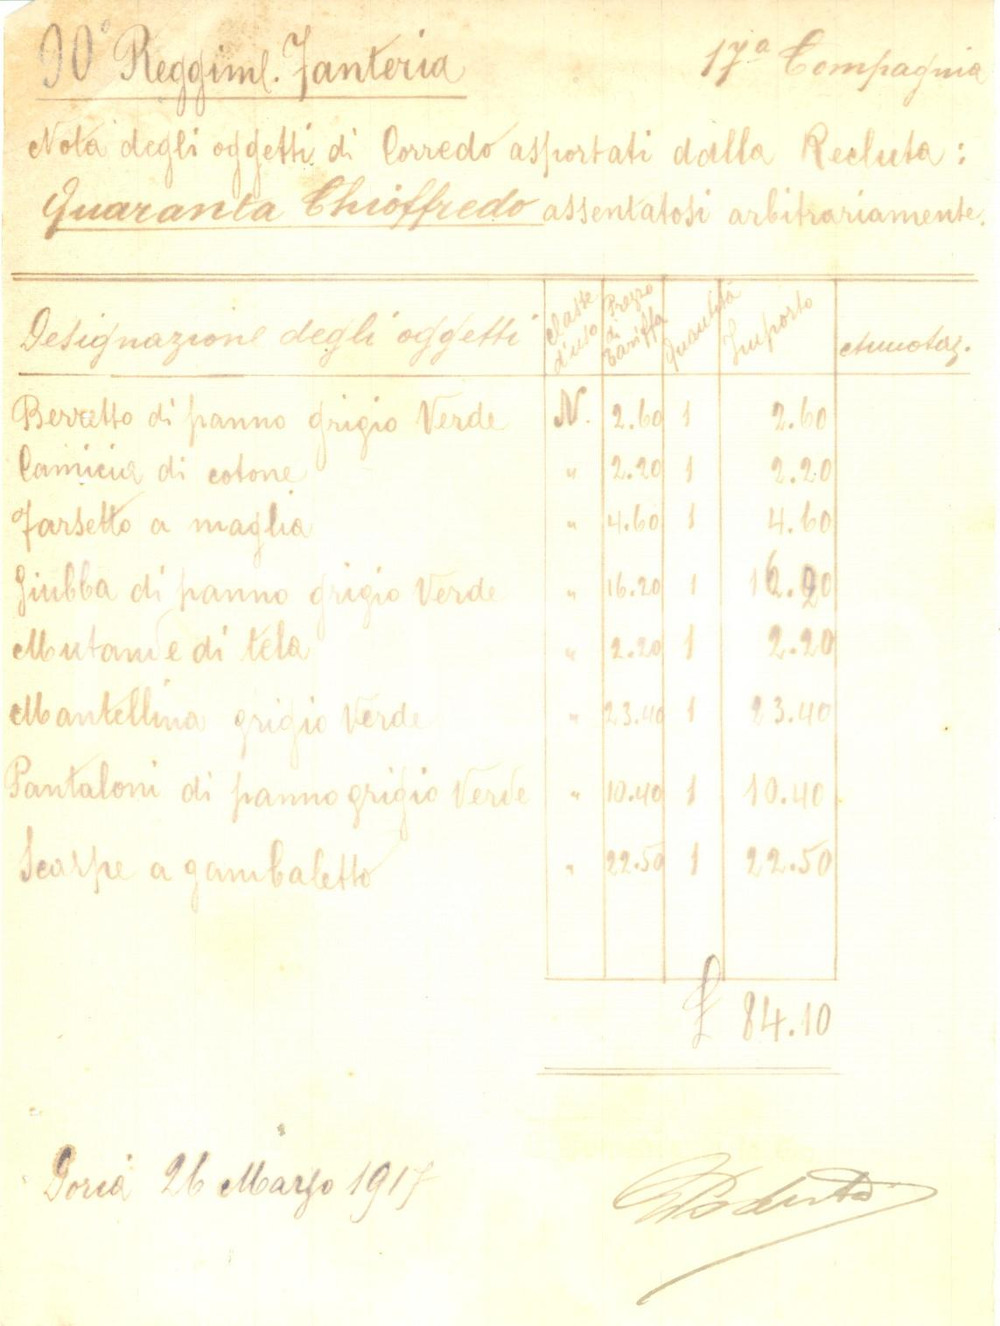 90° Reggim. Fanteria 17ª Compagnia
Nota degli oggetti di Corredo asportati dalla Recluta:
Quaranta Chioffredo assentatosi arbitrariamente.
Designazione degli oggetti Classe d'uso Prezzo di tariffa Quantità Importo Annotaz.
Berretto di panno grigio Verde N. 2.60 1 2.60
Camicia di cotone " 2.20 1 2.20
Farsetto a maglia " 4.60 1 4.60
Giubba di panno grigio Verde " 16.20 1 16.20
Mutande di tela " 2.20 1 2.20
Mantellina grigio Verde " 23.40 1 23.40
Pantaloni di panno grigio Verde " 10.40 1 10.40
Scarpe a gambaletto " 22.50 1 22.50
£ 84.10
Doria 26 Marzo 1917